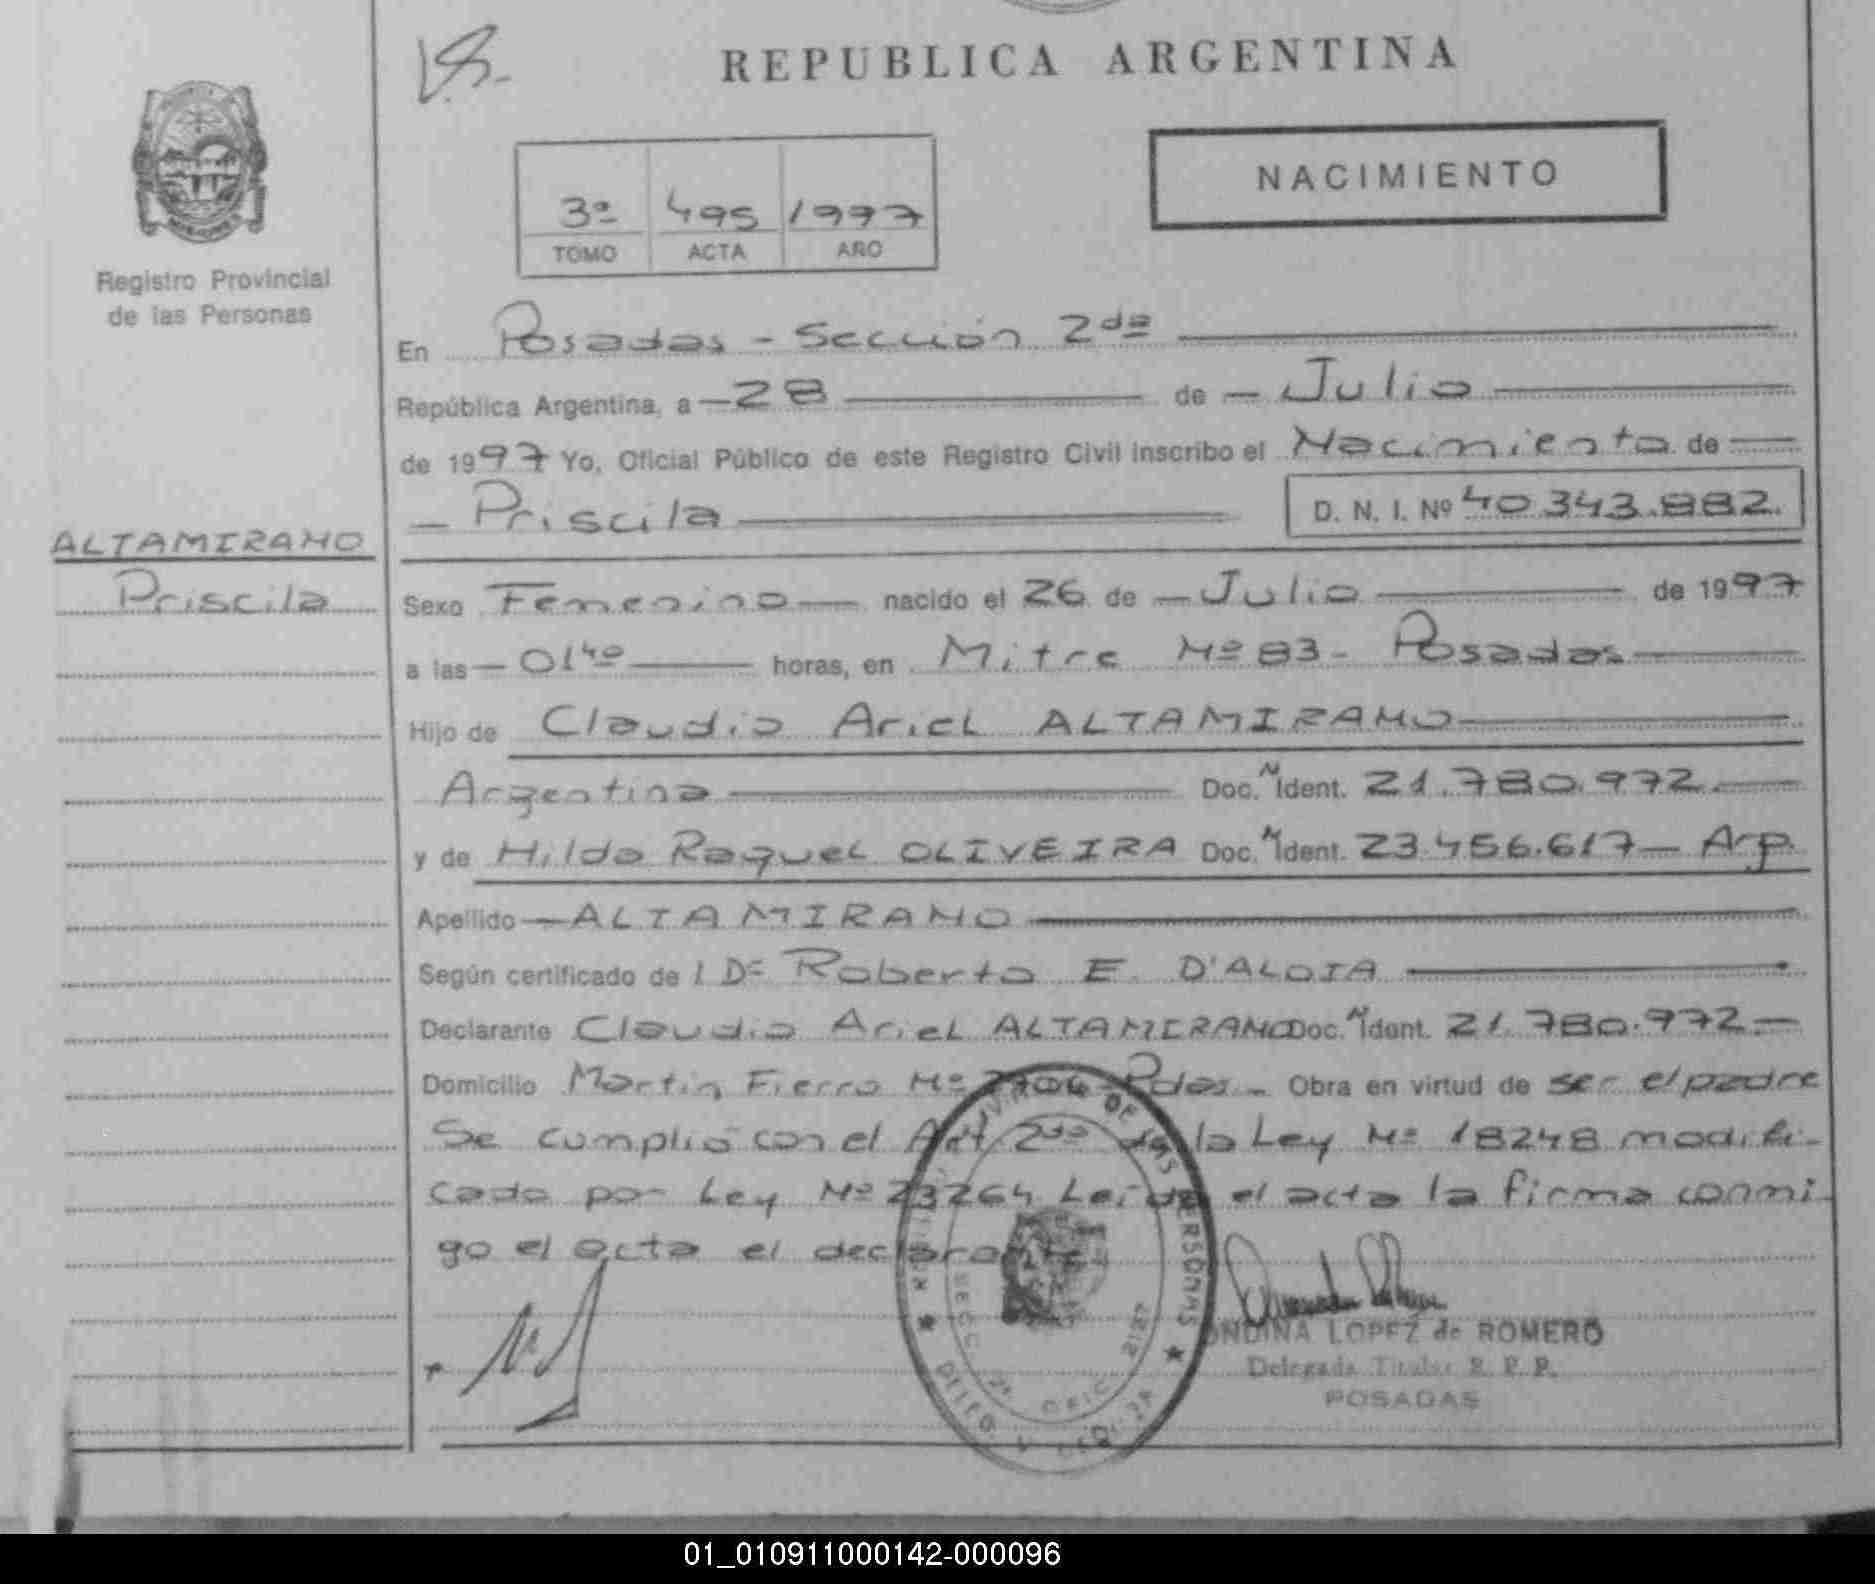 REPUBLICA ARGENTINA
NACIMIENTO
3º 495 1997
TOMO ACTA AÑO
Registro Provincial
de las Personas
En Posadas - Sección 2da
República Argentina, a - 28 de - Julio
de 1997 Yo, Oficial Público de este Registro Civil inscribo el Nacimiento de
- Priscila D. N. I. Nº 40 343.882.
ALTAMIRANO
Priscila
Sexo Femenino nacido el 26 de - Julio de 1997
a las - 01⁴⁰ horas, en Mitre Nº 83 - Posadas
Hijo de Claudio Ariel ALTAMIRANO
Argentina Doc. N Ident. 21.780.972.
y de Hilda Raquel OLIVEIRA Doc. N Ident. 23.456.617 - Arg.
Apellido - ALTAMIRANO
Según certificado de l Dr Roberto E. D'ALOIA
Declarante Claudio Ariel ALTAMIRANO Doc. N Ident. 21.780.972.-
Domicilio Martín Fierro Nº Pdas. - Obra en virtud de ser el padre
Se cumplió con el Art 2do de la Ley Nº 18248 modifi-
cado por Ley Nº 23264 Leída el acta la firma conmi-
go el acta el declarante
ONDINA LOPEZ de ROMERO
Delegada Titular R. P. P.
POSADAS
DE LAS PERSONAS
SECC. 2ª OFIC. 2127
01_010911000142-000096